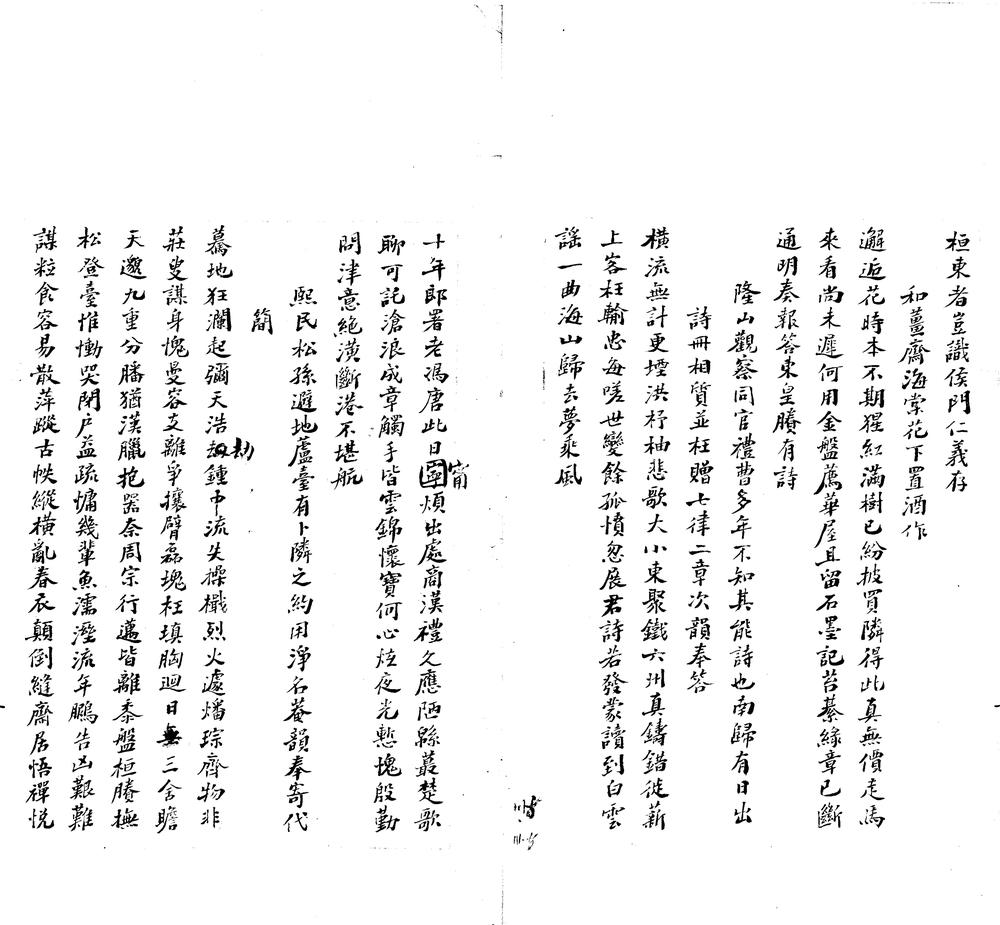 桓東者豈識侯門仁義存
和薑齋海棠花下置酒作
邂逅花時本不期猩紅滿樹已紛披買隣得此真無價走馬
來看尚未遲何用金盤薦華屋且留石墨記苔綦緣章已斷
通明奏報答東皇賸有詩
隆山觀察同官禮曹多年不知其能詩也南歸有日出
詩冊相質並枉贈七律二章次韻奉答
橫流無計更堙洪杼柚悲歌大小東聚鐵六州真鑄錯徙薪
上客枉輸忠每嗟世變餘孤憤忽展君詩若發蒙讀到白雲
謠一曲海山歸去夢乘風
十年郎署老馮唐此日寧煩出處商漢禮久應陋緜蕞楚歌
甯
聊可託滄浪成章觸手皆雲錦懷寶何心炫夜光慙愧殷勤
問津意絕潢斷港不堪航
熙民松孫避地蘆臺有卜隣之約用淨名菴韻奉寄代
簡
驀地狂瀾起彌天浩劫鍾中流失操檝烈火遽燔琮齊物非
劫
莊叟謀身愧曼容支離爭攘臂磊塊枉填胸迴日無三舍瞻
天邈九重分膰猶漢臘抱器奈周宗行邁皆離黍盤桓賸撫
松登臺惟慟哭閉戶益疏慵幾輩魚濡溼流年鵩告凶艱難
謀粒食容易散萍蹤古帙縱橫亂春衣顛倒縫齋居悟禪悅